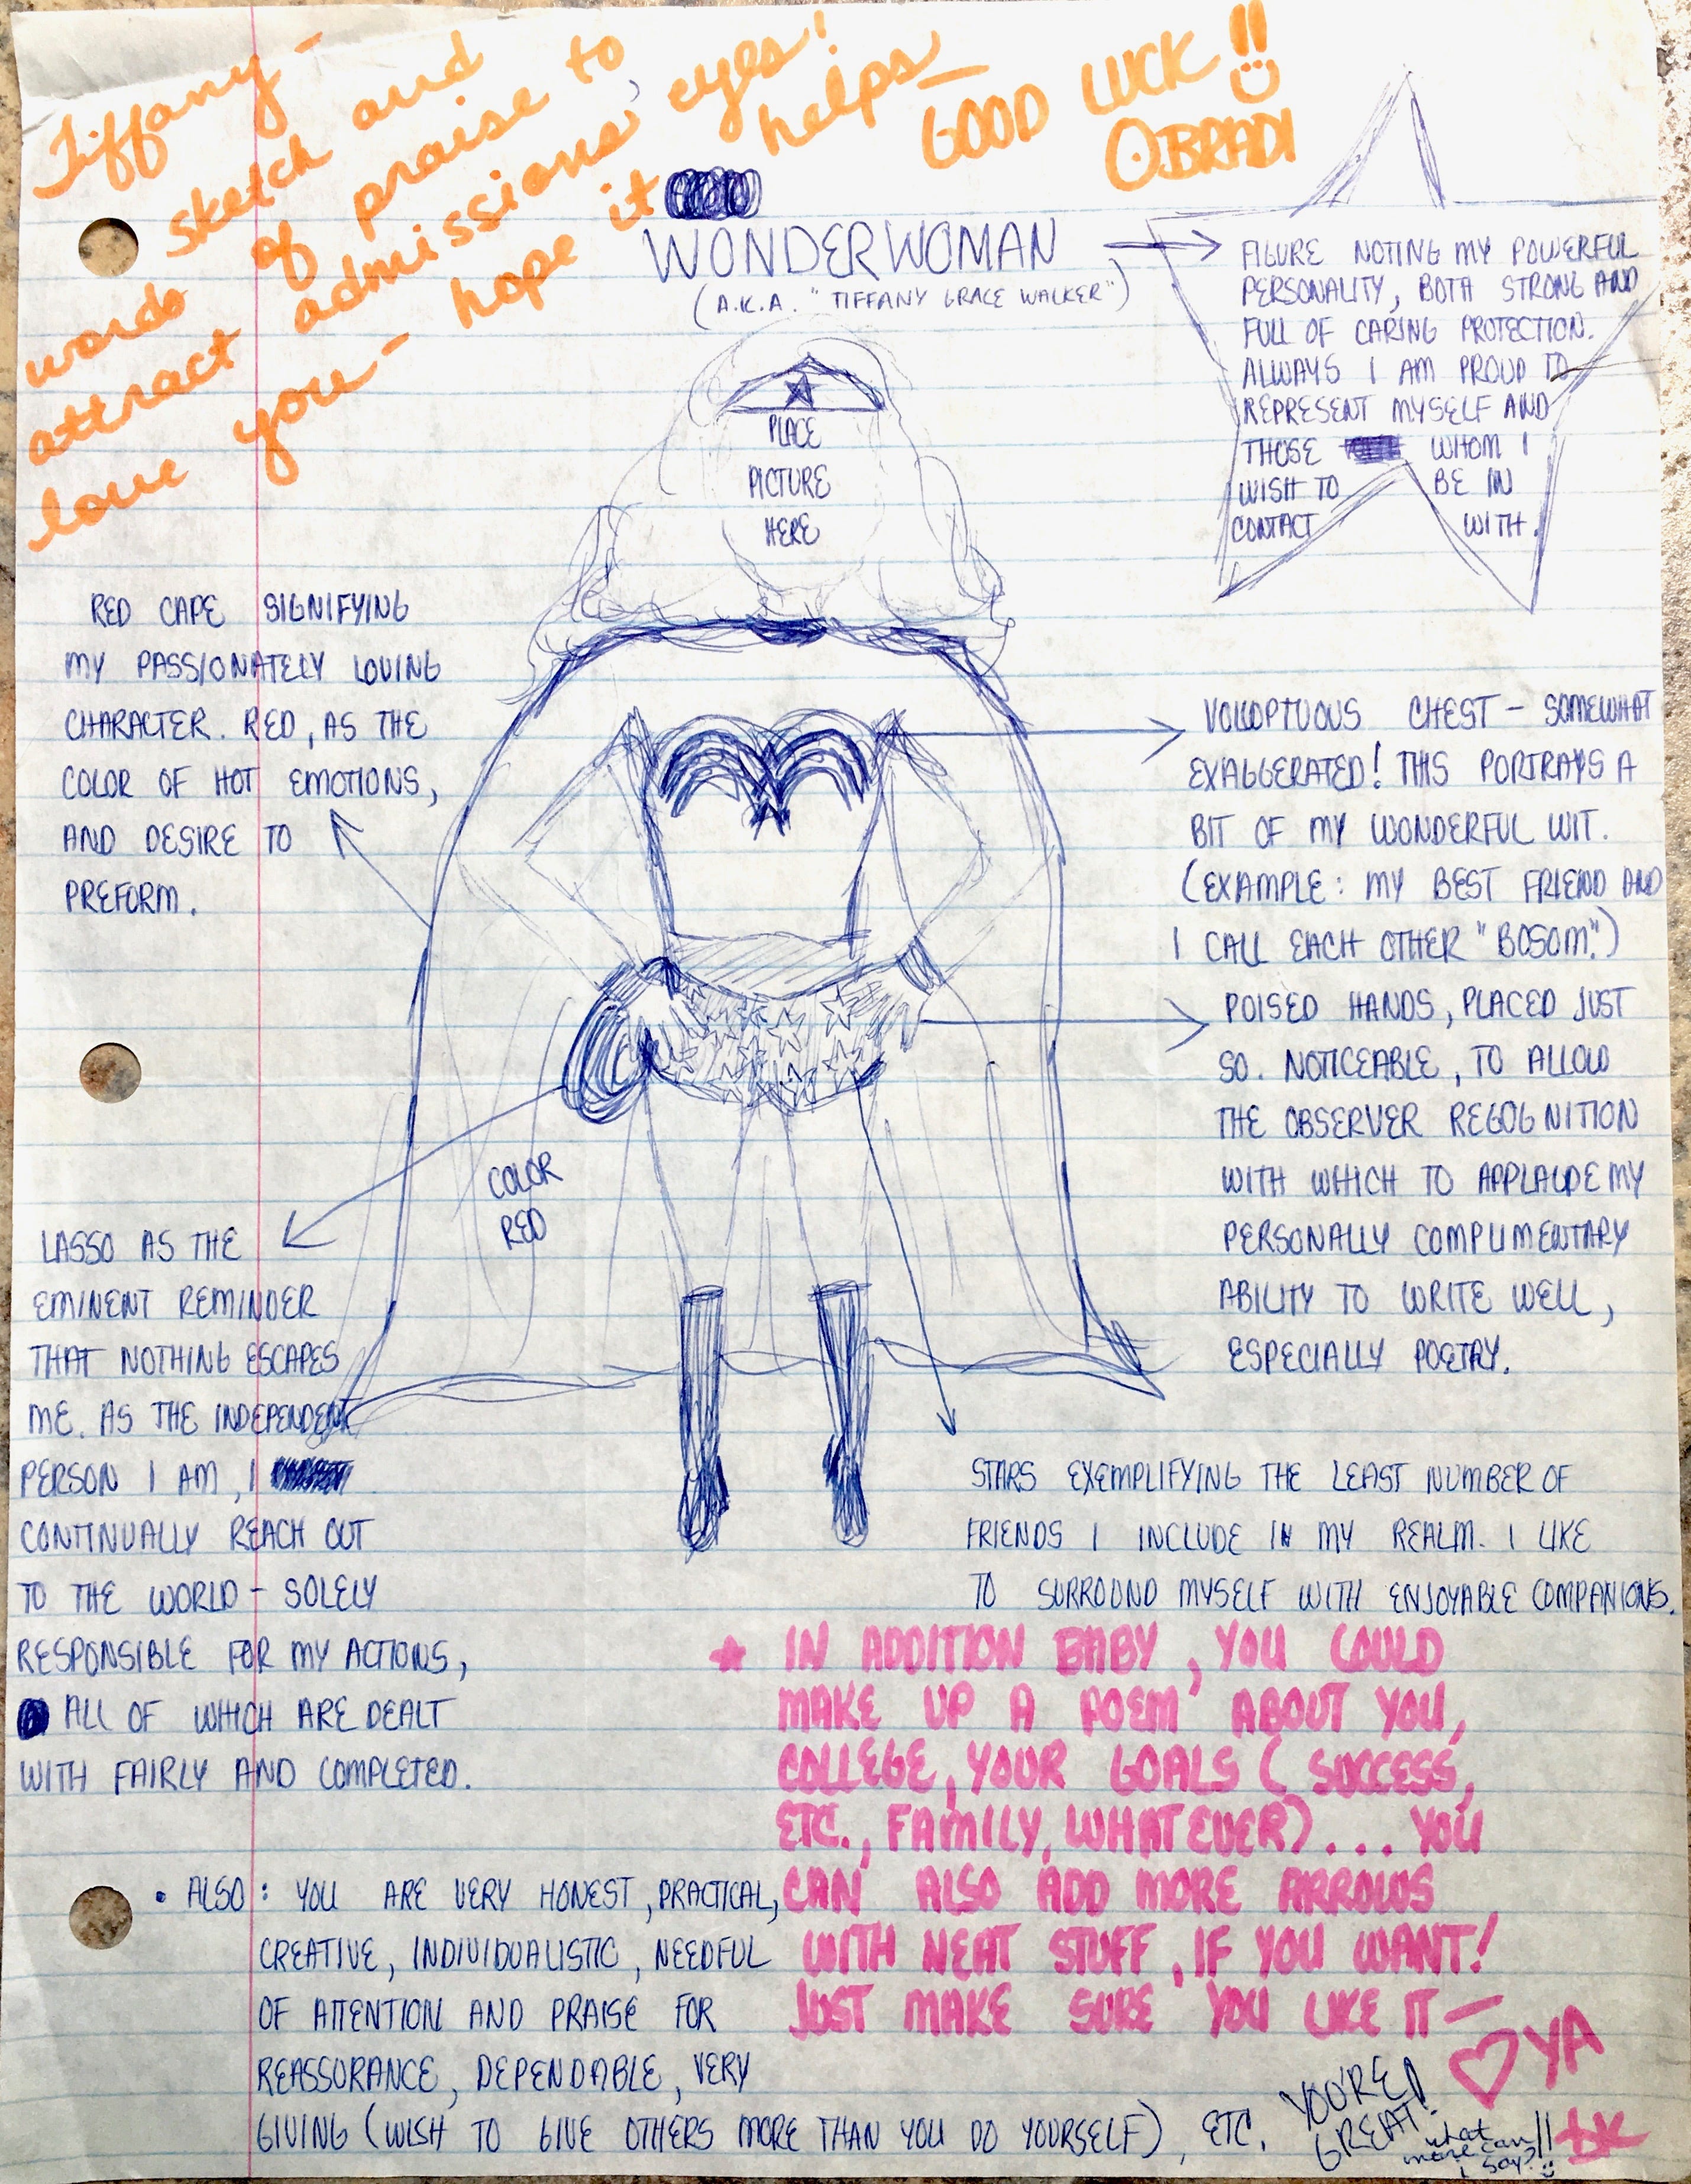 Tiffany -
sketch and
words of praise to
attract admissions' eyes!
love you - hope it helps -
GOOD LUCK!!
BRADI
WONDERWOMAN
(A.K.A. "TIFFANY GRACE WALKER")
FIGURE NOTING MY POWERFUL
PERSONALITY, BOTH STRONG AND
FULL OF CARING PROTECTION.
ALWAYS I AM PROUD TO
REPRESENT MYSELF AND
THOSE WHOM I
WISH TO BE IN
CONTACT WITH.
PLACE
PICTURE
HERE
RED CAPE SIGNIFYING
MY PASSIONATELY LOVING
CHARACTER. RED, AS THE
COLOR OF HOT EMOTIONS,
AND DESIRE TO
PREFORM.
VOLUPTUOUS CHEST - SOMEWHAT
EXAGGERATED! THIS PORTRAYS A
BIT OF MY WONDERFUL WIT.
(EXAMPLE: MY BEST FRIEND AND
I CALL EACH OTHER "BOSOM".)
POISED HANDS, PLACED JUST
SO. NOTICEABLE, TO ALLOW
THE OBSERVER REGOGNITION
WITH WHICH TO APPLAUDE MY
PERSONALLY COMPLIMENTARY
ABILITY TO WRITE WELL,
ESPECIALLY POETRY.
COLOR
RED
LASSO AS THE
EMINENT REMINDER
THAT NOTHING ESCAPES
ME. AS THE INDEPENDENT
PERSON I AM, I
CONTINUALLY REACH OUT
TO THE WORLD - SOLELY
RESPONSIBLE FOR MY ACTIONS,
ALL OF WHICH ARE DEALT
WITH FAIRLY AND COMPLETED.
STARS EXEMPLIFYING THE LEAST NUMBER OF
FRIENDS I INCLUDE IN MY REALM. I LIKE
TO SURROUND MYSELF WITH ENJOYABLE COMPANIONS.
* IN ADDITION BABY, YOU COULD
MAKE UP A POEM ABOUT YOU,
COLLEGE, YOUR GOALS (SUCCESS,
ETC., FAMILY, WHATEVER)... YOU
CAN ALSO ADD MORE ARROWS
WITH NEAT STUFF, IF YOU WANT!
JUST MAKE SURE YOU LIKE IT -
♡ YA
• ALSO: YOU ARE VERY HONEST, PRACTICAL,
CREATIVE, INDIVIDUALISTIC, NEEDFUL
OF ATTENTION AND PRAISE FOR
REASSURANCE, DEPENDABLE, VERY
GIVING (WISH TO GIVE OTHERS MORE THAN YOU DO YOURSELF), ETC.
YOU'RE
GREAT!
what
more can
I say?!!